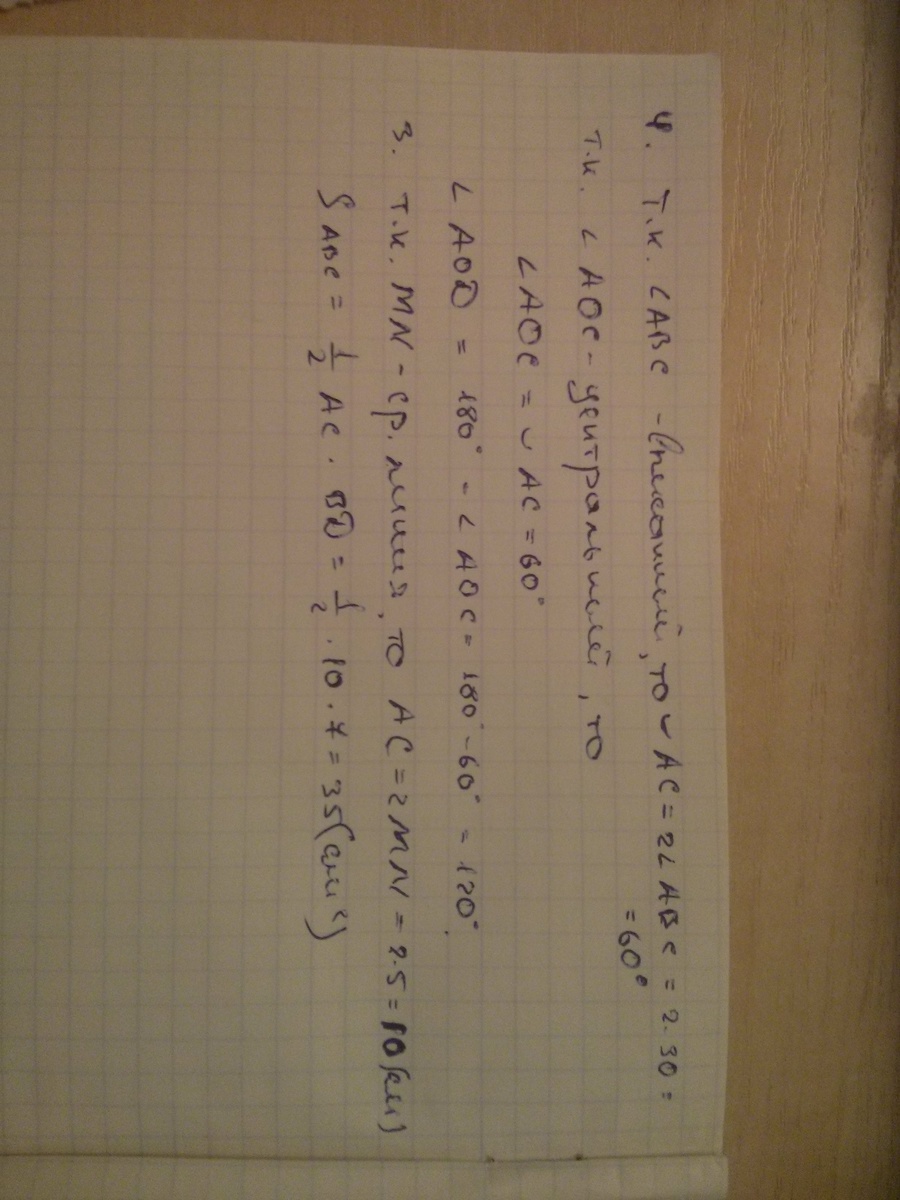 4. Т.к. ∠ABC - вписанный, то ◡ AC = 2∠ABC = 2·30 =
= 60°
т.к. ∠AOC - центральный, то
∠AOC = ◡ AC = 60°
∠AOD = 180° - ∠AOC = 180° - 60° = 120°.
3. т.к. MN - ср. линия, то AC = 2MN = 2·5 = 10(см)
S ABC = 1/2 AC · BD = 1/2 · 10 · 7 = 35(см²)